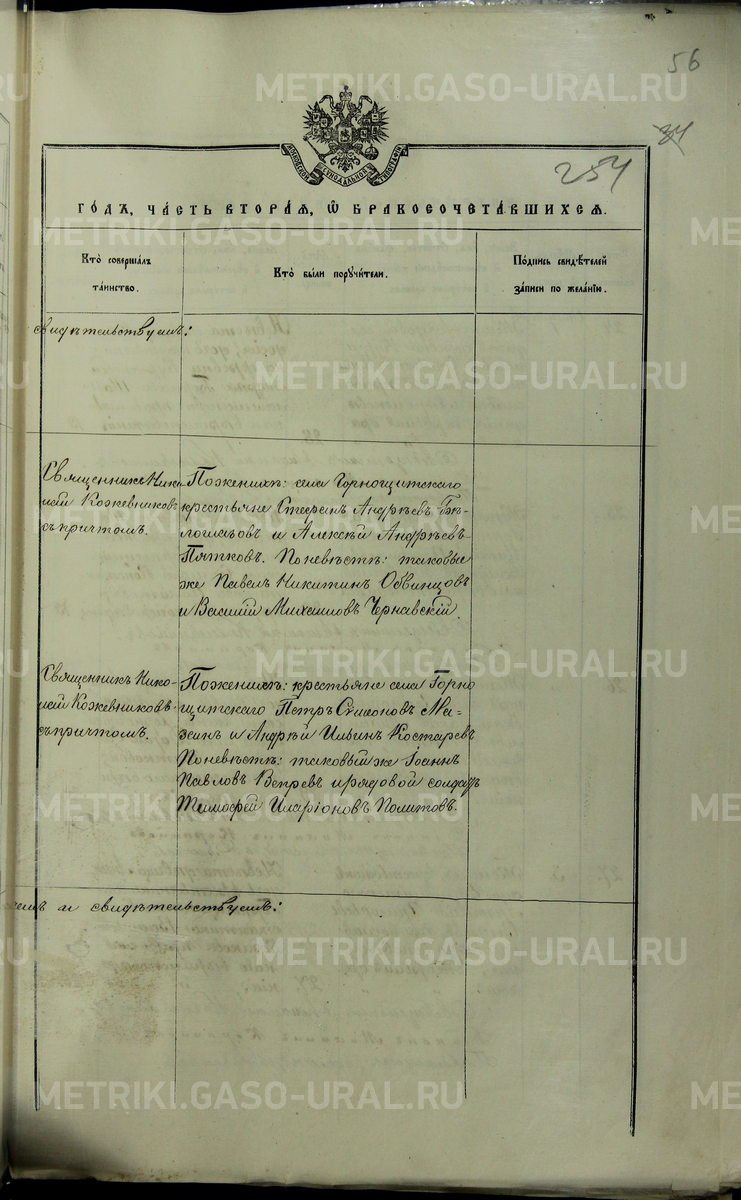 56
34
254
МОСКОВСКОЙ СѴНОДАЛЬНОЙ ТИПОГРАФІИ
ГО́ДЪ, ЧА́СТЬ ВТОРА́Я, Ѽ БРАКОСОЧЕТА́ВШИХСЯ.
Кто̀ совершáлъ
тáинство.
Кто̀ бы́ли порꙋчи́тели.
По́дпись свидѣ́телей
зáписи по желáнїю.
свидѣтельствуемъ:
Священникъ Нико-
лай Кожевниковъ
съ причтомъ.
По женихѣ: села Горнощитскаго
крестьяне Стефанъ Андреевъ Бѣ-
логлазовъ и Алексѣй Андреевъ
Пятковъ. По невѣстѣ: таковые
же Павелъ Никитинъ Обвинцовъ
и Василій Михаиловъ Чернавскій.
Священникъ Нико-
лай Кожевниковъ
съ причтомъ.
По женихѣ: крестьяне села Горно
щитскаго Петръ Симеоновъ Ма-
зинъ и Андрей Ильинъ Костаревъ
По невѣстѣ: таковый же Іоаннъ
Павловъ Вепревъ и рядовой солдатъ
Тимофей Иларіоновъ Политовъ.
емъ и свидѣтельствуемъ:
METRIKI.GASO-URAL.RU